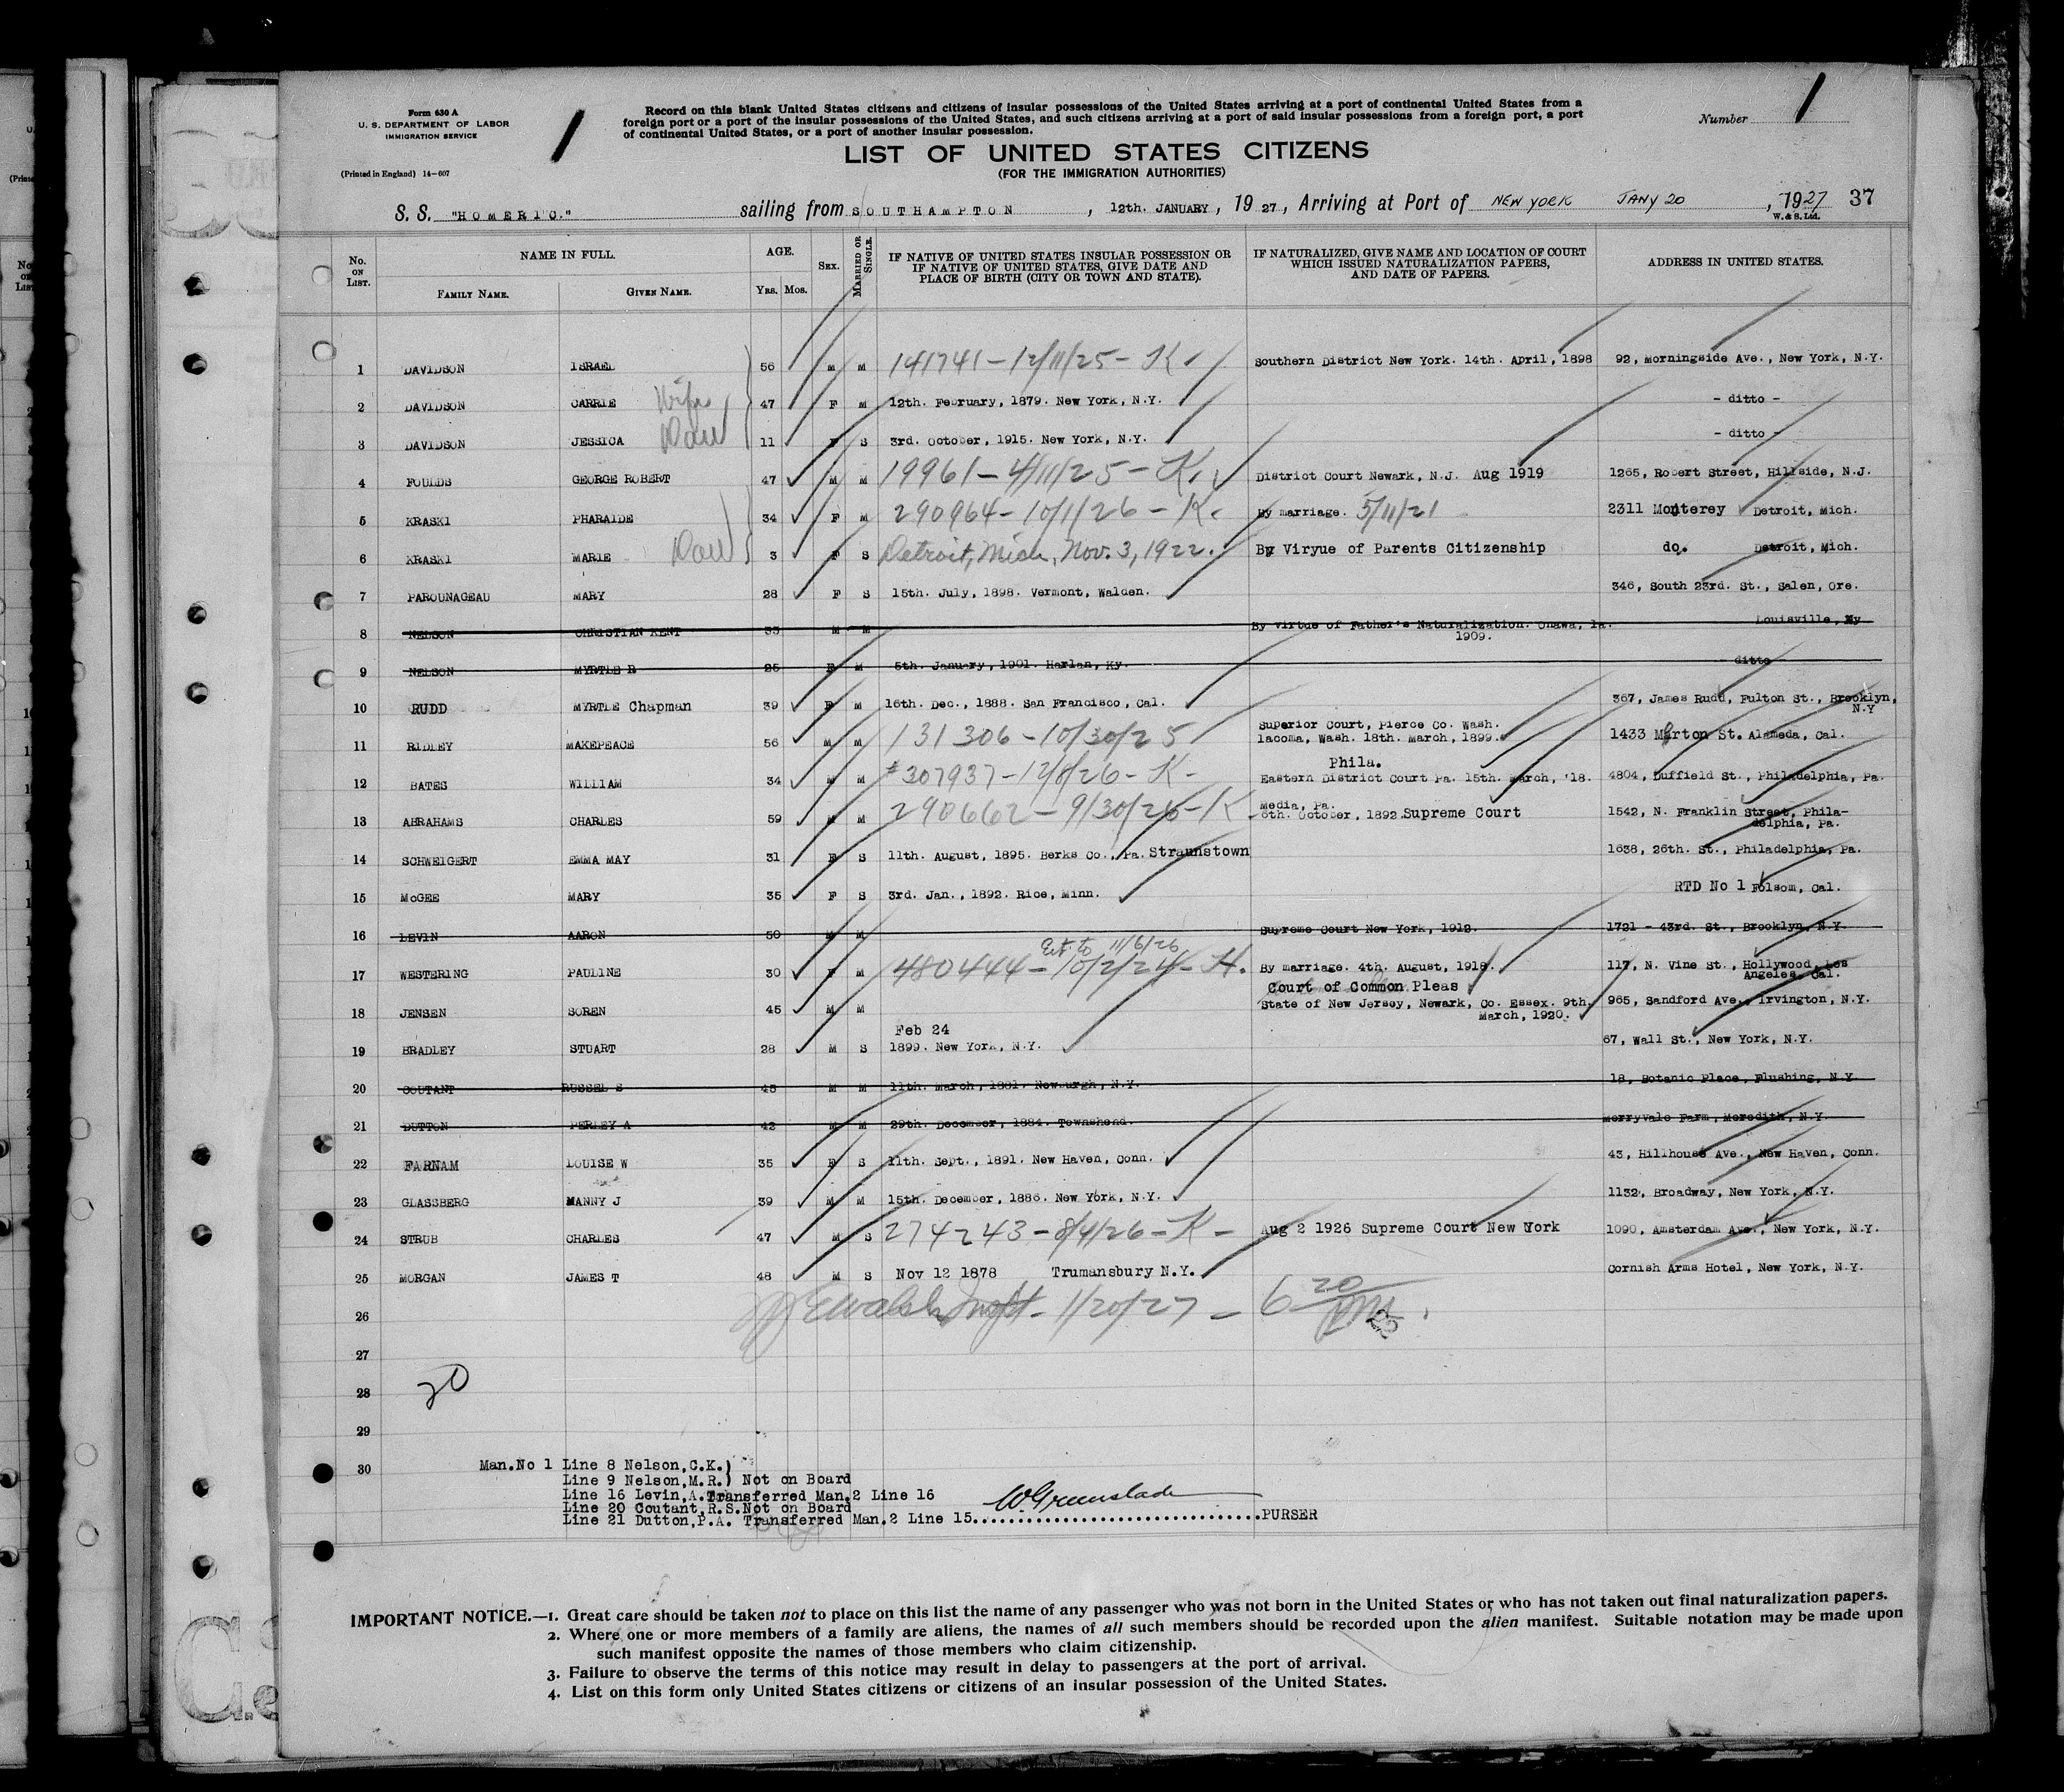 Form 630 A
U. S. DEPARTMENT OF LABOR
IMMIGRATION SERVICE
(Printed in England) 14—607
Record on this blank United States citizens and citizens of insular possessions of the United States arriving at a port of continental United States from a
foreign port or a port of the insular possessions of the United States, and such citizens arriving at a port of said insular possessions from a foreign port, a port
of continental United States, or a port of another insular possession.
Number 1
1
LIST OF UNITED STATES CITIZENS
(FOR THE IMMIGRATION AUTHORITIES)
S. S. "HOMERIC." sailing from SOUTHAMPTON, 12th. JANUARY, 1927, Arriving at Port of NEW YORK JANY 20, 1927 37
W. & S. Ltd.
No. ON LIST.
NAME IN FULL.
FAMILY NAME. GIVEN NAME.
AGE. Yrs. Mos.
SEX.
MARRIED OR SINGLE.
IF NATIVE OF UNITED STATES INSULAR POSSESSION OR
IF NATIVE OF UNITED STATES, GIVE DATE AND
PLACE OF BIRTH (CITY OR TOWN AND STATE).
IF NATURALIZED, GIVE NAME AND LOCATION OF COURT
WHICH ISSUED NATURALIZATION PAPERS,
AND DATE OF PAPERS.
ADDRESS IN UNITED STATES.
1 DAVIDSON ISRAEL 56 M M 141741-12/11/25-K Southern District New York. 14th. April, 1898 92, Morningside Ave., New York, N.Y.
2 DAVIDSON CARRIE Wife 47 F M 12th. February, 1879. New York, N.Y. - ditto -
3 DAVIDSON JESSICA Dau 11 F S 3rd. October, 1915. New York, N.Y. - ditto -
4 FOULDS GEORGE ROBERT 47 M M 19961-4/11/25-K. District Court Newark, N.J. Aug 1919 1265, Robert Street, Hillside, N.J.
5 KRASKI PHARAIDE 34 F M 290964-10/1/26-K. By marriage. 5/11/21 2311 Monterey Detroit, Mich.
6 KRASKI MARIE Dau 3 F S Detroit, Mich, Nov. 3, 1922. By Viryue of Parents Citizenship do. Detroit, Mich.
7 PAROUNAGEAU MARY 28 F S 15th. July, 1898. Vermont, Walden. 346, South 23rd. St., Salen, Ore.
8 NELSON CHRISTIAN KENT 33 M M By virtue of Father's Naturalization. Onawa, Ia. Louisville, Ky
1909.
9 NELSON MYRTLE R 25 F M 5th. January, 1901. Harlan, Ky. ditto
10 RUDD MYRTLE Chapman 39 F M 16th. Dec., 1888. San Francisco, Cal. 367, James Rudd, Fulton St., Brooklyn,
N.Y
Superior Court, Pierce Co. Wash.
11 RIDLEY MAKEPEACE 56 M M 131306-10/30/25 Tacoma, Wash. 18th. March, 1899. 1433 Morton St. Alameda, Cal.
Phila.
12 BATES WILLIAM 34 M M #307937-12/8/26-K- Eastern District Court Pa. 15th. March, '18. 4804, Duffield St., Philadelphia, Pa.
Media, Pa.
13 ABRAHAMS CHARLES 59 M M 290662-9/30/26-K 6th. October, 1892. Supreme Court 1542, N. Franklin Street, Phila-
delphia, Pa.
14 SCHWEIGERT EMMA MAY 31 F S 11th. August, 1895. Berks Co., Pa. Straunstown 1638, 26th. St., Philadelphia, Pa.
15 McGEE MARY 35 F S 3rd. Jan., 1892. Rice, Minn. RTD No 1 Folsom, Cal.
16 LEVIN AARON 50 M M Supreme Court New York, 1912. 1721 - 43rd. St., Brooklyn, N.Y.
Ext. to 11/6/26
17 WESTERING PAULINE 30 F M 480444-10/2/24-H. By marriage. 4th. August, 1918. 117, N. Vine St., Hollywood, Los
Angeles, Cal.
Court of Common Pleas
18 JENSEN SOREN 45 M M State of New Jersey, Newark, Co. Essex. 9th. 965, Sandford Ave., Irvington, N.Y.
March, 1920.
Feb 24
19 BRADLEY STUART 28 M S 1899. New York, N.Y. 67, Wall St., New York, N.Y.
20 COUTANT RUSSEL S 45 M M 11th. March, 1881. Newburgh, N.Y. 18, Botanic Place, Flushing, N.Y.
21 DUTTON PERLEY A 42 M M 29th. December, 1884. Townshend. Merryvale Farm, Meredith, N.Y.
22 FARNAM LOUISE W 35 F S 11th. Sept., 1891. New Haven, Conn. 43, Hillhouse Ave., New Haven, Conn.
23 GLASSBERG MANNY J 39 M M 15th. December, 1886. New York, N.Y. 1132, Broadway, New York, N.Y.
24 STRUB CHARLES 47 M S 274243-8/4/26-K- Aug 2 1926 Supreme Court New York 1090, Amsterdam Ave., New York, N.Y.
25 MORGAN JAMES T 48 M S Nov 12 1878 Trumansbury N.Y. Cornish Arms Hotel, New York, N.Y.
26 Walsh Inspt-1/20/27- 6 20 PM
27
28 20
29
30
Man.No 1 Line 8 Nelson,C.K.)
Line 9 Nelson,M.R.) Not on Board
Line 16 Levin,A.Transferred Man.2 Line 16
Line 20 Coutant,R.S.Not on Board
Line 21 Dutton,P.A. Transferred Man.2 Line 15
W Greenslade
PURSER
IMPORTANT NOTICE.—1. Great care should be taken not to place on this list the name of any passenger who was not born in the United States or who has not taken out final naturalization papers.
2. Where one or more members of a family are aliens, the names of all such members should be recorded upon the alien manifest. Suitable notation may be made upon
such manifest opposite the names of those members who claim citizenship.
3. Failure to observe the terms of this notice may result in delay to passengers at the port of arrival.
4. List on this form only United States citizens or citizens of an insular possession of the United States.